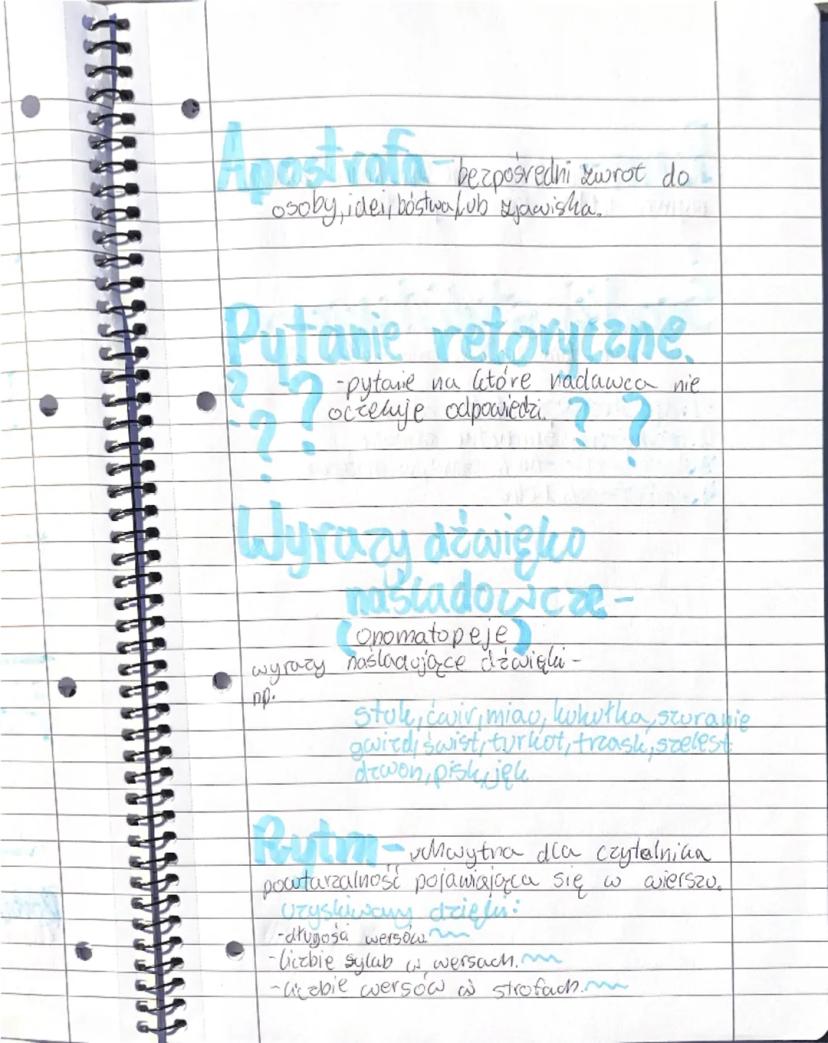 Apostrofa - bezpośredni zwrot do
osoby, idei, bóstwa, lub zjawiska.
Pytanie retoryczne.
? ? - pytanie na które nadawca nie
? ? oczekuje odpowiedzi. ? ?
Wyrazy dźwięko
naśladowcze -
(onomatopeje)
wyrazy naśladujące dźwięki -
np.
stuk, ćwir, miau, kukułka, szuranie
gwizd, świst, turkot, trzask, szelest
dzwon, pisk, jęk
Rytm - uchwytna dla czytelnika
powtarzalność pojawiająca się w wierszu.
Uzyskiwany dzięki:
- długości wersów.
- liczbie sylab w wersach.
- liczbie wersów w strofach.